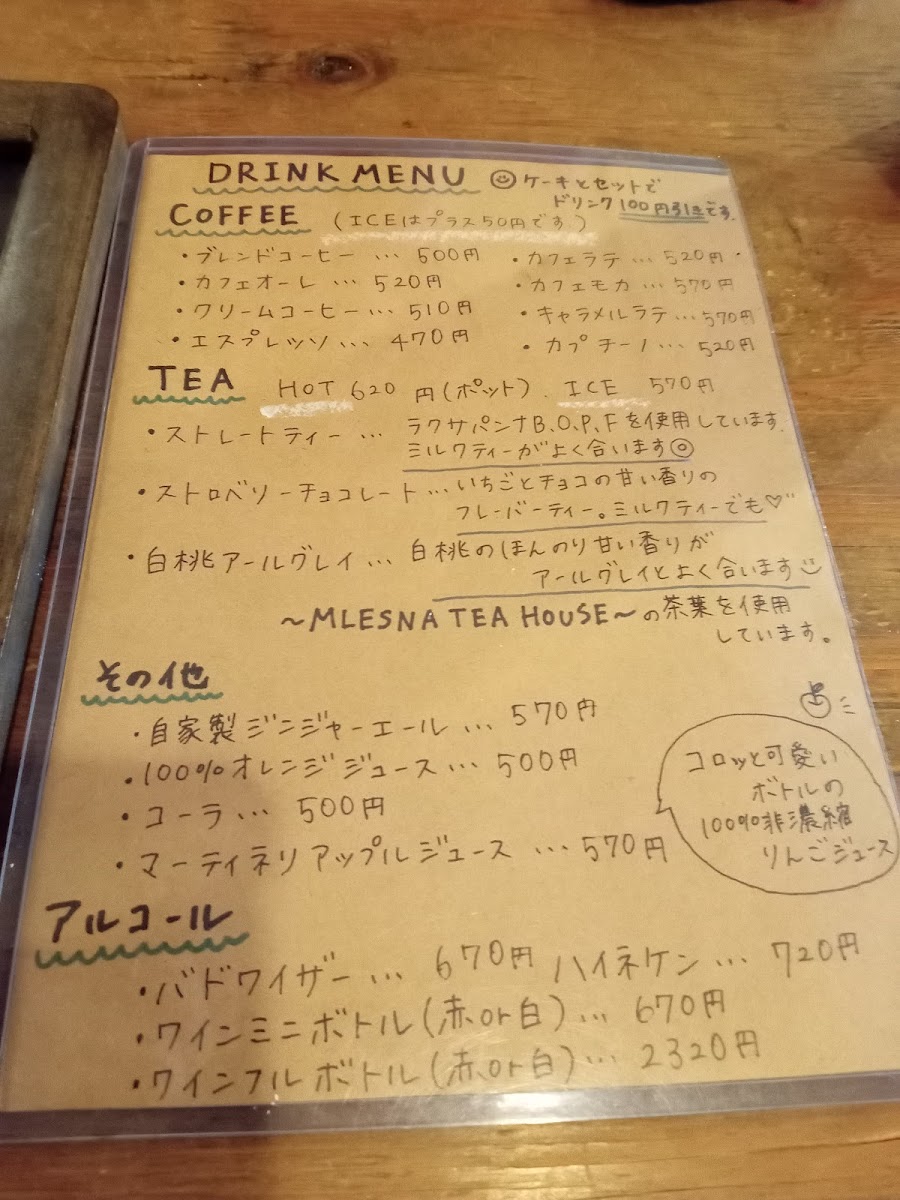 DRINK MENU ケーキとセットで
ドリンク100円引きです.
COFFEE (ICEはプラス50円です)
・ブレンドコーヒー … 500円
・カフェオーレ … 520円
・クリームコーヒー … 510円
・エスプレッソ … 470円
・カフェラテ … 520円
・カフェモカ … 570円
・キャラメルラテ … 570円
・カプチーノ … 520円
TEA HOT 620円(ポット) ICE 570円
・ストレートティー … ラクサパンナB.O.P.Fを使用しています.
ミルクティーがよく合います◎
・ストロベリーチョコレート … いちごとチョコの甘い香りの
フレーバーティー。ミルクティーでも♡
・白桃アールグレイ … 白桃のほんのり甘い香りが
アールグレイとよく合います
～MLESNA TEA HOUSE～の茶葉を使用
しています。
その他
・自家製ジンジャーエール … 570円
・100%オレンジジュース … 500円
・コーラ … 500円
・マーティネリアップルジュース … 570円
コロッと可愛い
ボトルの
100%非濃縮
りんごジュース
アルコール
・バドワイザー … 670円 ハイネケン … 720円
・ワインミニボトル(赤or白) … 670円
・ワインフルボトル(赤or白) … 2320円